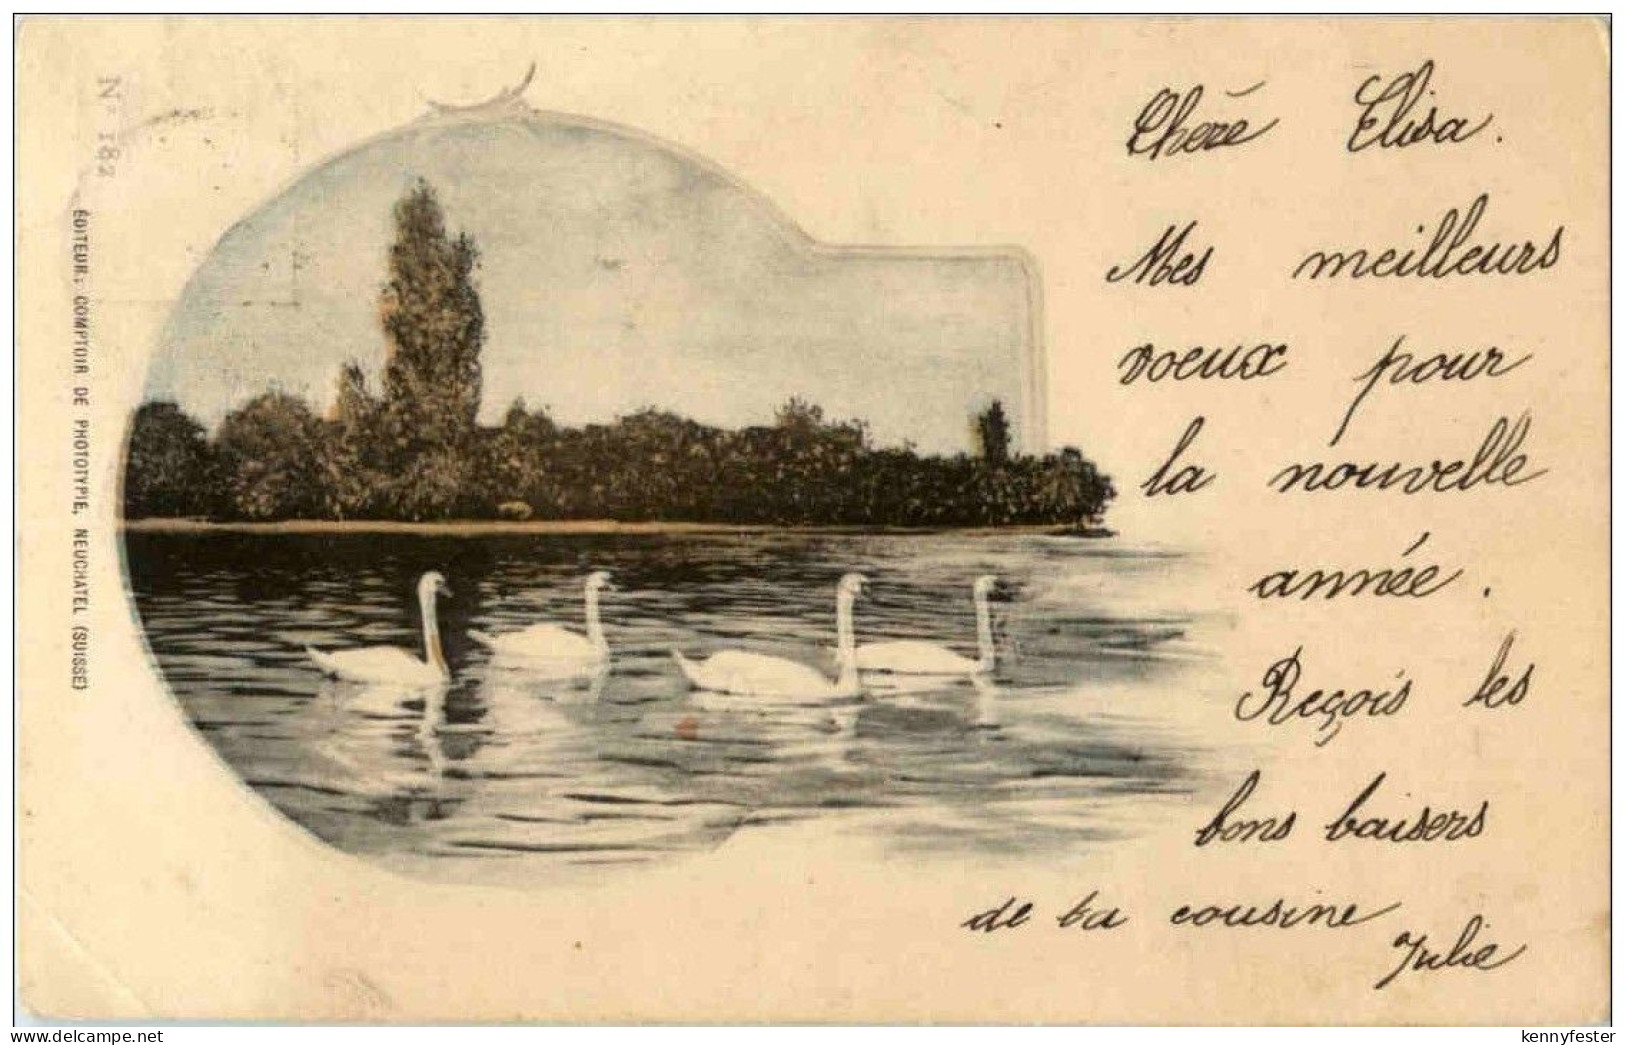 N° 182
ÉDITEUR: COMPTOIR DE PHOTOTYPIE, NEUCHATEL (SUISSE)
Chère Elisa.
Mes meilleurs
voeux pour
la nouvelle
année.
Reçois les
bons baisers
de ta cousine
Julie
delcampe.net
kennyfester